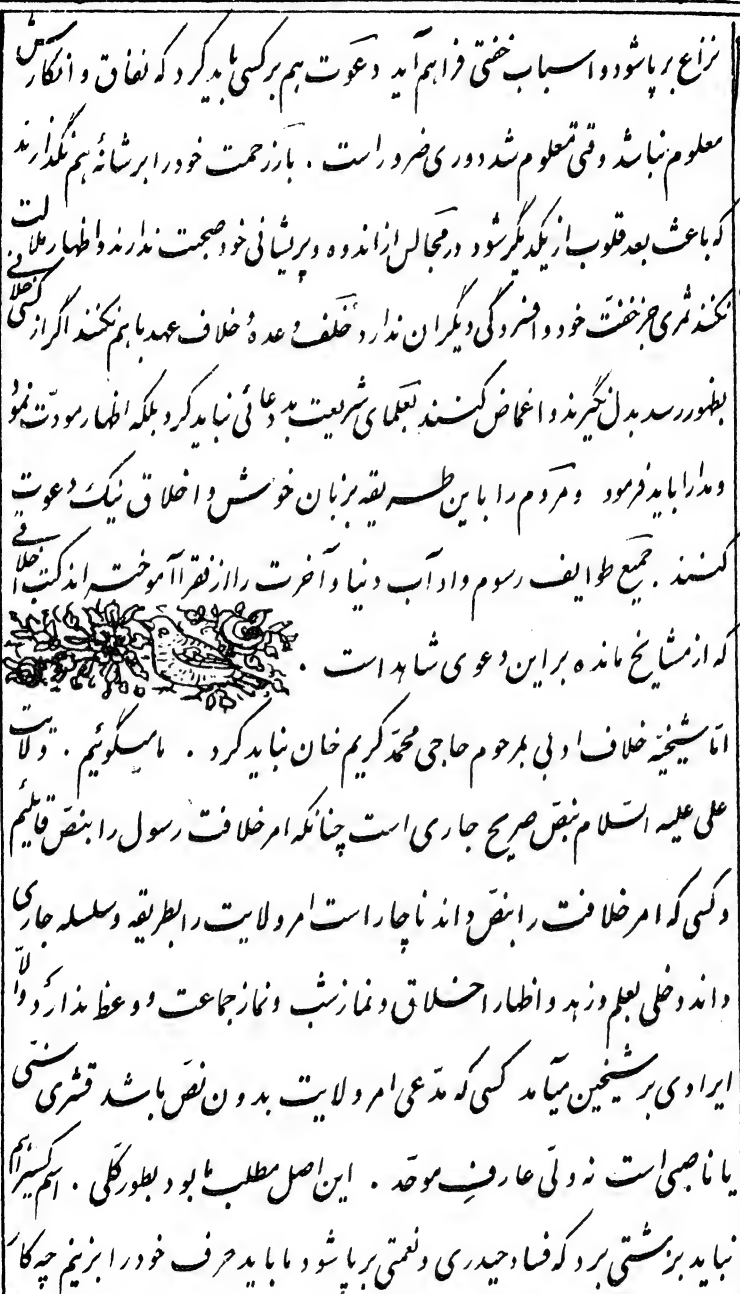 نزاع برپا شود و اسباب خفتی فراهم آید دعوت هم بر کسی باید کرد که نفاق و انکارش
معلوم نباشد وقتی معلوم شد دوری ضرور است . بار زحمت خود را بر شانهٔ هم نگذارند
که باعث بعد قلوب از یکدیگر شود در مجالس از اندوه و پریشانی خود صحبت ندارند و اظهار ملالت
نکنند ثمری جز خفت خود و افسردگی دیگران ندارد خلف وعده و خلاف عهد با هم نکنند اگر از کسی خلافی
بظهور رسد بدل نگیرند و اغماض کنند بعلمای شریعت بد دعائی نباید کرد بلکه اظهار مودّت نمود
و مدارا باید فرمود و مردم را باین طریقه بزبان خوش و اخلاق نیک دعوت
کنند . جمیع طوایف رسوم و اداب دنیا و آخرت را از فقرا آموخته اند کتب اخلاقی
که از مشایخ مانده بر این دعوی شاهد است .
امّا شیخیّه خلاف ادبی بمرحوم حاجی محمّد کریم خان نباید کرد . ما میگوئیم . ولایت
علی علیه السّلام بنصّ صریح جاری است چنانکه امر خلافت رسول را بنصّ قایلیم
و کسی که امر خلافت را بنصّ داند ناچار است امر ولایت را بطریقه و سلسله جاری
داند دخلی بعلم و زهد و اظهار اخلاق و نماز شب و نماز جماعت و وعظ ندارد و الّا
ایرادی بر شیخین میآمد کسی که مدّعی امر ولایت بدون نصّ باشد قشری سنّی
یا ناصبی است نه ولّی عارف موحّد . این اصل مطلب ما بود بطور کلّی . اسم کسیرا هم
نباید بزشتی برد که فساد حیدری و نعمتی برپا شود ما باید حرف خود را بزنیم چه کار